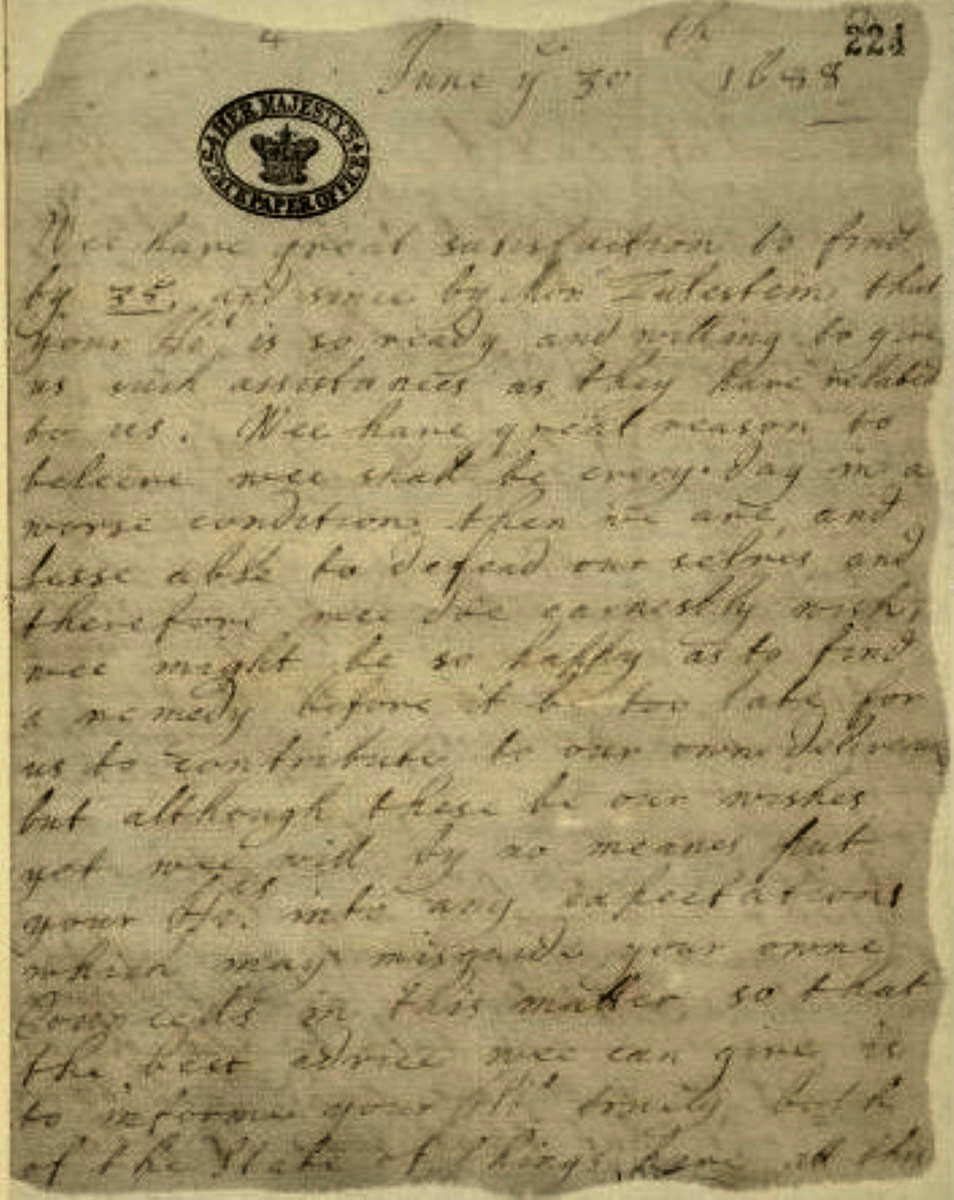 224
June ye 30th 1688
HER MAJESTY'S STATE PAPER OFFICE
Wee have great satisfaction to find
by 35, and since by Mon Zulestein, that
your Hs is so ready and willing to give
us such assistances as they have related
to us. Wee have great reason to
beleeve wee shall be every day in a
worse condition then we are, and
lesse able to defend our selves, and
therefore wee doe earnestly wish,
wee might be so happy as to find
a remedy before it be too late for
us to contribute to our owne
but although these be our wishes
yet wee will by no meanes put
your Hs into any expectations
which may misguide your owne
in this matter, so that
the best advice wee can give is
to informe your Hs truely both
of the State of things here at this